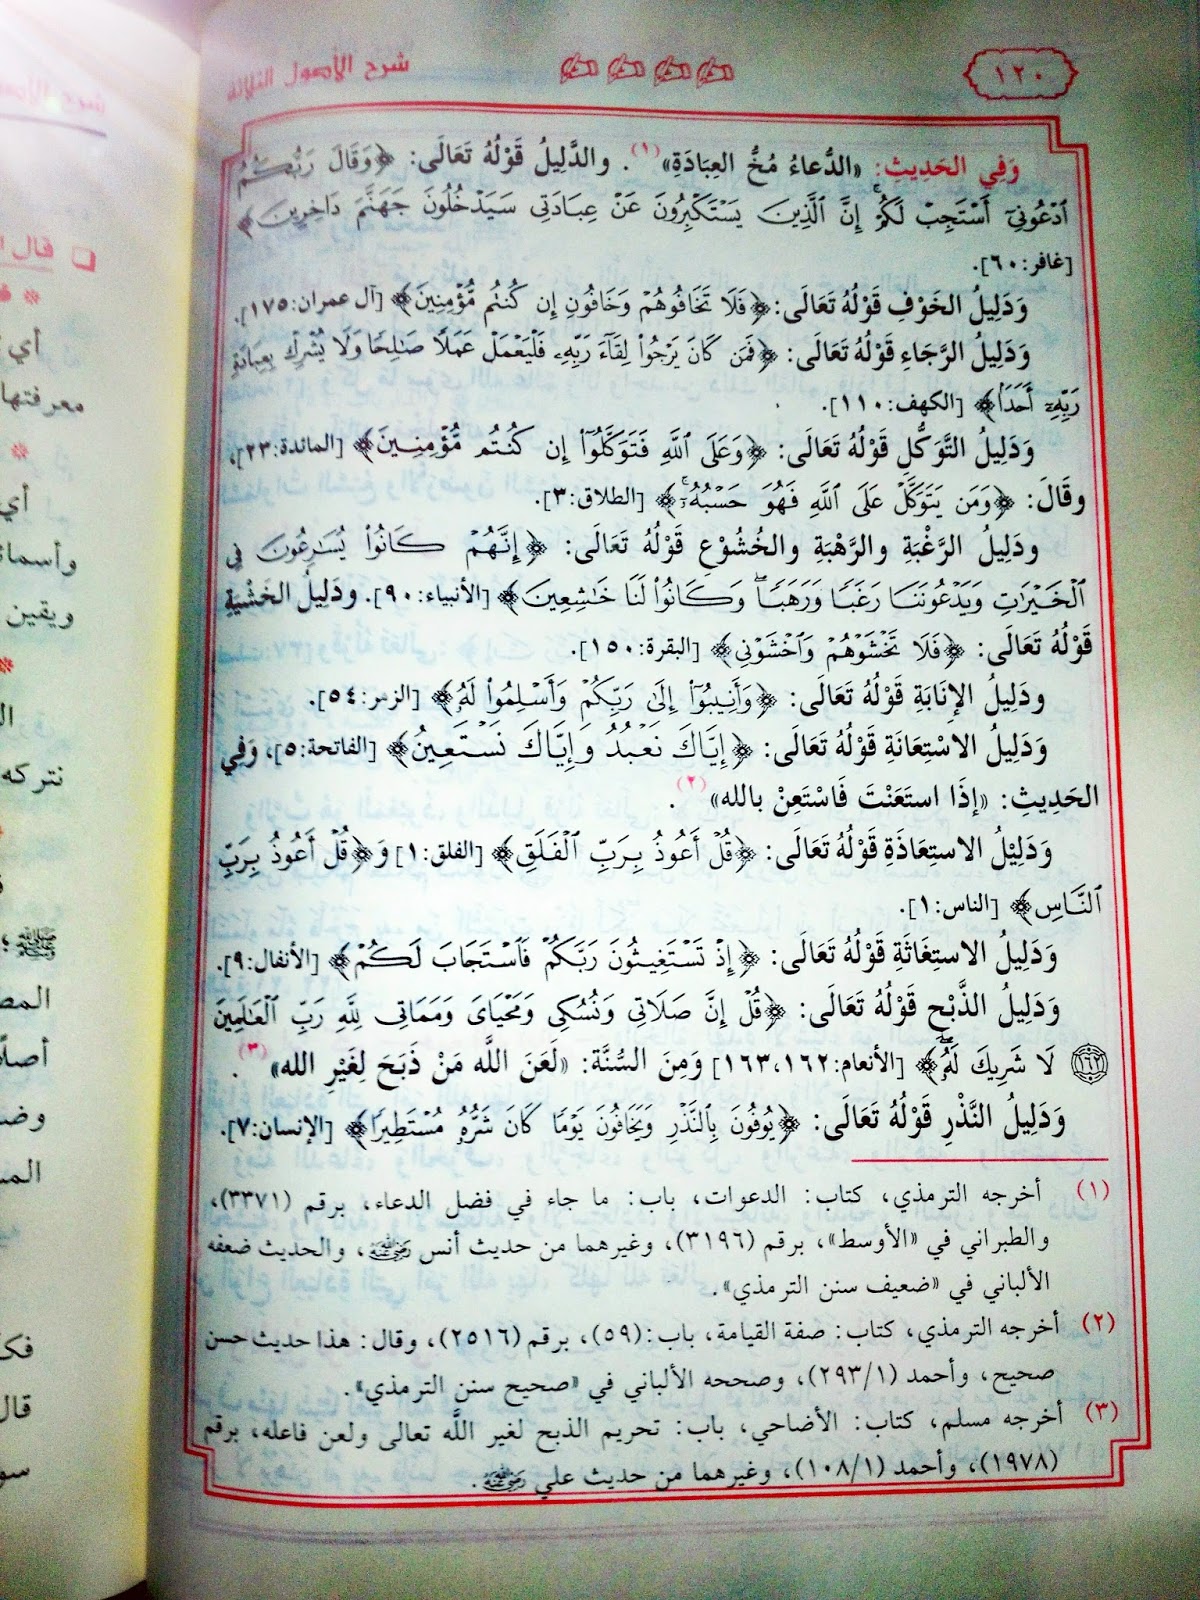 ١٢٠
شرح الأصول الثلاثة
وَفِي الحَدِيثِ: «الدُّعاءُ مُخُّ العِبَادَةِ»(١). والدَّلِيلُ قَوْلُهُ تَعَالَى: ﴿وَقَالَ رَبُّكُمُ
ٱدْعُونِىٓ أَسْتَجِبْ لَكُمْ إِنَّ ٱلَّذِينَ يَسْتَكْبِرُونَ عَنْ عِبَادَتِى سَيَدْخُلُونَ جَهَنَّمَ دَاخِرِينَ﴾
[غافر:٦٠].
وَدَلِيلُ الخَوْفِ قَوْلُهُ تَعَالَى: ﴿فَلَا تَخَافُوهُمْ وَخَافُونِ إِن كُنتُم مُّؤْمِنِينَ﴾ [آل عمران:١٧٥].
وَدَلِيلُ الرَّجَاءِ قَوْلُهُ تَعَالَى: ﴿فَمَن كَانَ يَرْجُوا۟ لِقَآءَ رَبِّهِۦ فَلْيَعْمَلْ عَمَلًا صَٰلِحًا وَلَا يُشْرِكْ بِعِبَادَةِ
رَبِّهِۦٓ أَحَدًۢا﴾ [الكهف:١١٠].
وَدَلِيلُ التَّوَكُّلِ قَوْلُهُ تَعَالَى: ﴿وَعَلَى ٱللَّهِ فَتَوَكَّلُوٓا۟ إِن كُنتُم مُّؤْمِنِينَ﴾ [المائدة:٢٣]،
وقَالَ: ﴿وَمَن يَتَوَكَّلْ عَلَى ٱللَّهِ فَهُوَ حَسْبُهُۥٓ﴾ [الطلاق:٣].
ودَلِيلُ الرَّغْبَةِ والرَّهْبَةِ والخُشُوْعِ قَوْلُهُ تَعَالَى: ﴿إِنَّهُمْ كَانُوا۟ يُسَٰرِعُونَ فِى
ٱلْخَيْرَٰتِ وَيَدْعُونَنَا رَغَبًا وَرَهَبًا وَكَانُوا۟ لَنَا خَٰشِعِينَ﴾ [الأنبياء:٩٠]. ودَلِيلُ الخَشْيَةِ
قَوْلُهُ تَعَالَى: ﴿فَلَا تَخْشَوْهُمْ وَٱخْشَوْنِى﴾ [البقرة:١٥٠].
ودَلِيلُ الإِنَابَةِ قَوْلُهُ تَعَالَى: ﴿وَأَنِيبُوٓا۟ إِلَىٰ رَبِّكُمْ وَأَسْلِمُوا۟ لَهُۥ﴾ [الزمر:٥٤].
وَدَلِيلُ الاسْتِعَانَةِ قَوْلُهُ تَعَالَى: ﴿إِيَّاكَ نَعْبُدُ وَإِيَّاكَ نَسْتَعِينُ﴾ [الفاتحة:٥]، وَفِي
الحَدِيثِ: «إِذَا استَعَنْتَ فَاسْتَعِنْ بالله»(٢).
وَدَلِيْلُ الاستِعَاذَةِ قَوْلُهُ تَعَالَى: ﴿قُلْ أَعُوذُ بِرَبِّ ٱلْفَلَقِ﴾ [الفلق:١] وَ﴿قُلْ أَعُوذُ بِرَبِّ
ٱلنَّاسِ﴾ [الناس:١].
وَدَلِيلُ الاستِغَاثَةِ قَوْلُهُ تَعَالَى: ﴿إِذْ تَسْتَغِيثُونَ رَبَّكُمْ فَٱسْتَجَابَ لَكُمْ﴾ [الأنفال:٩].
وَدَلِيلُ الذَّبْحِ قَوْلُهُ تَعَالَى: ﴿قُلْ إِنَّ صَلَاتِى وَنُسُكِى وَمَحْيَاىَ وَمَمَاتِى لِلَّهِ رَبِّ ٱلْعَٰلَمِينَ
١٦٢ لَا شَرِيكَ لَهُۥ﴾ [الأنعام:١٦٢،١٦٣] وَمِنَ السُّنَّة: «لَعَنَ اللَّه مَنْ ذَبَحَ لِغَيْرِ الله»(٣).
وَدَلِيلُ النَّذْرِ قَوْلُهُ تَعَالَى: ﴿يُوفُونَ بِٱلنَّذْرِ وَيَخَافُونَ يَوْمًا كَانَ شَرُّهُۥ مُسْتَطِيرًا﴾ [الإنسان:٧].
(١) أخرجه الترمذي، كتاب: الدعوات، باب: ما جاء في فضل الدعاء، برقم (٣٣٧١)،
والطبراني في «الأوسط»، برقم (٣١٩٦)، وغيرهما من حديث أنس رضي الله عنه، والحديث ضعفه
الألباني في «ضعيف سنن الترمذي».
(٢) أخرجه الترمذي، كتاب: صفة القيامة، باب:(٥٩)، برقم (٢٥١٦)، وقال: هذا حديث حسن
صحيح، وأحمد (٢٩٣/١)، وصححه الألباني في «صحيح سنن الترمذي».
(٣) أخرجه مسلم، كتاب: الأضاحي، باب: تحريم الذبح لغير اللَّه تعالى ولعن فاعله، برقم
(١٩٧٨)، وأحمد (١٠٨/١)، وغيرهما من حديث علي رضي الله عنه.
أي
معرفتها
أي
ويقين
نتركه